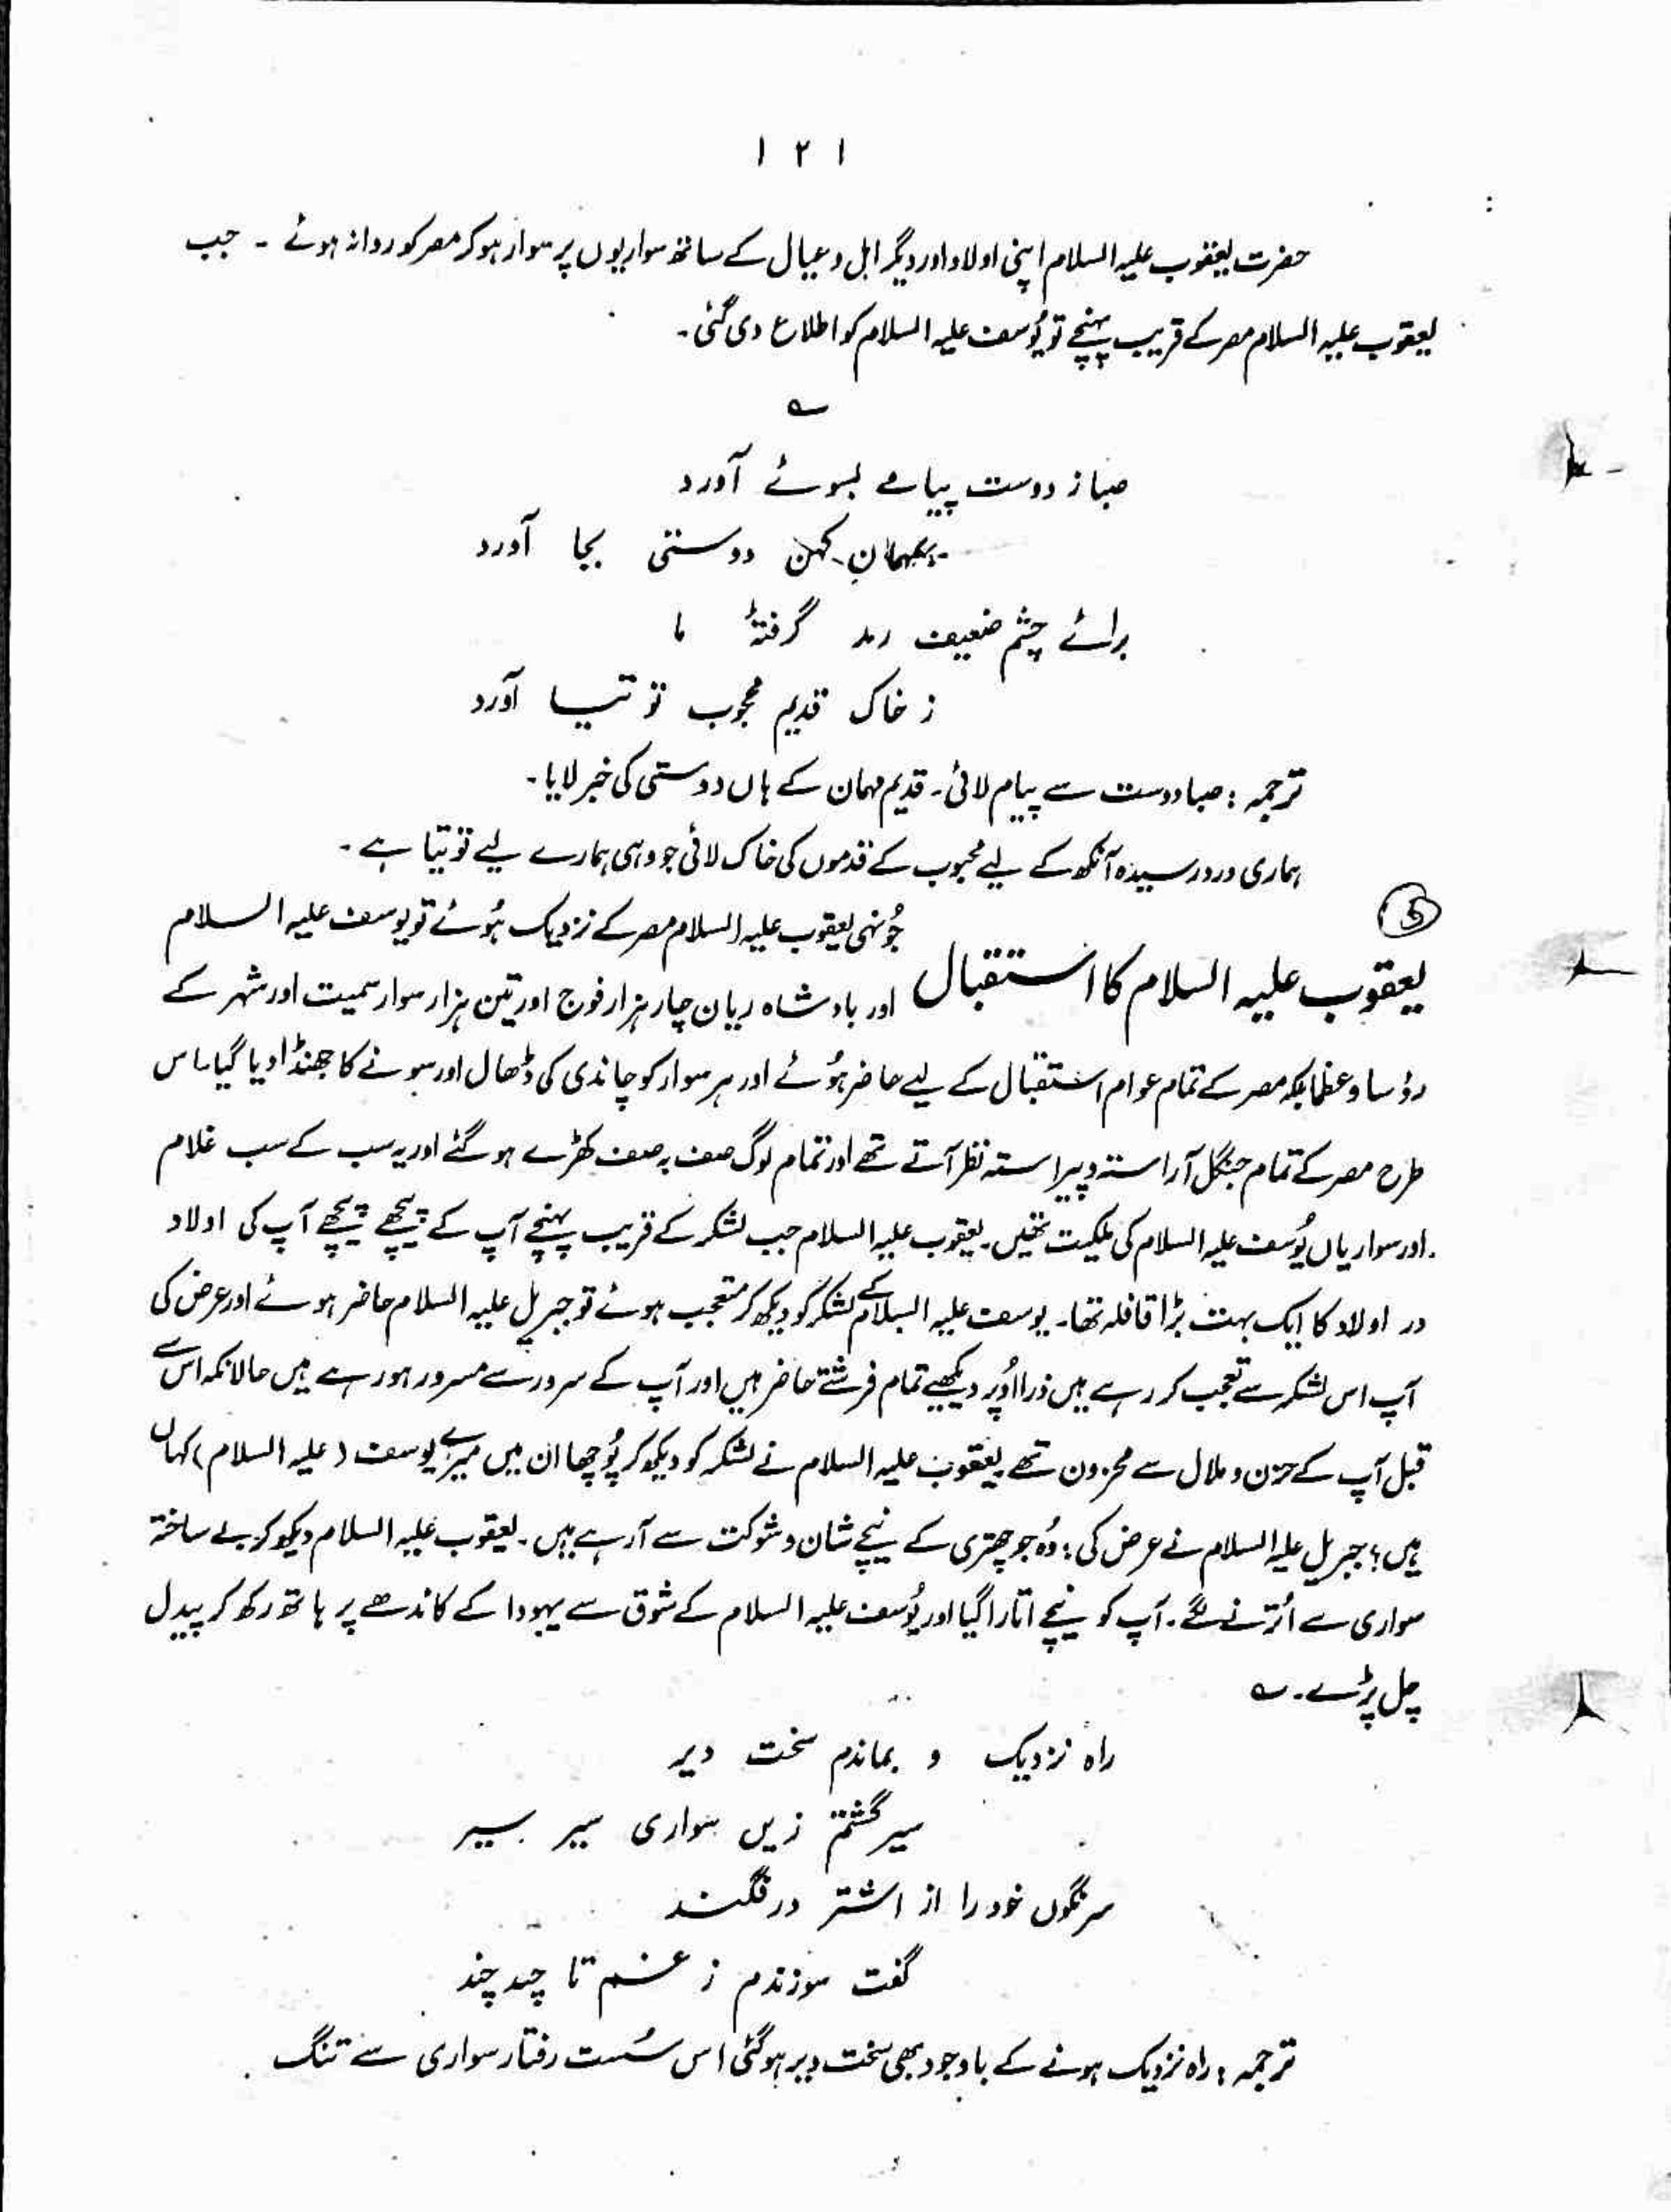 ۱۲۱
حضرت یعقوب علیہ السلام اپنی اولاد اور دیگر اہل و عیال کے ساتھ سواریوں پر سوار ہو کر مصر کو روانہ ہوئے ۔ جب
یعقوب علیہ السلام مصر کے قریب پہنچے تو یُوسف علیہ السلام کو اطلاع دی گئی ۔
؎
صبا ز دوست پیامے بسوئے آورد
بہمان کہن دوستی بجا آورد
برائے چشم ضعیف رمد گرفتۂ ما
ز خاک قدیم محبوب توتیا آورد
ترجمہ : صبا دوست سے پیام لائی ۔ قدیم مہمان کے ہاں دوستی کی خبر لایا ۔
ہماری درد رسیدہ آنکھ کے لیے محبوب کے قدموں کی خاک لائی جو وہی ہمارے لیے توتیا ہے ۔
⑤
جُونہی یعقوب علیہ السلام مصر کے نزدیک ہُوئے تو یوسف علیہ السلام
یعقوب علیہ السلام کا استقبال
اور بادشاہ ریان چار ہزار فوج اور تین ہزار سوار سمیت اور شہر کے
رؤسا و عظما بلکہ مصر کے تمام عوام استقبال کے لیے حاضر ہُوئے اور ہر سوار کو چاندی کی ڈھال اور سونے کا جھنڈا دیا گیا ۔ اس
طرح مصر کے تمام جنگل آراستہ و پیراستہ نظر آتے تھے اور تمام لوگ صف بہ صف کھڑے ہو گئے اور یہ سب کے سب غلام
اور سواریاں یُوسف علیہ السلام کی ملکیت تھیں ۔ یعقوب علیہ السلام جب لشکر کے قریب پہنچے آپ کے پیچھے پیچھے آپ کی اولاد
در اولاد کا ایک بہت بڑا قافلہ تھا ۔ یوسف علیہ السلام کے لشکر کو دیکھ کر متعجب ہوئے تو جبریل علیہ السلام حاضر ہوئے اور عرض کی
آپ اس لشکر سے تعجب کر رہے ہیں ذرا اُوپر دیکھیے تمام فرشتے حاضر ہیں اور آپ کے سرور سے مسرور ہو رہے ہیں حالانکہ اس سے
قبل آپ کے حزن و ملال سے محزون تھے یعقوب علیہ السلام نے لشکر کو دیکھ کر پُوچھا ان میں میرے یوسف (علیہ السلام) کہاں
ہیں ؟ جبریل علیہ السلام نے عرض کی : وُہ جو چھتری کے نیچے شان و شوکت سے آرہے ہیں ۔ یعقوب علیہ السلام دیکھ کر بے ساختہ
سواری سے اُترنے لگے ۔ آپ کو نیچے اتارا گیا اور یُوسف علیہ السلام کے شوق سے یہودا کے کاندھے پر ہاتھ رکھ کر پیدل
چل پڑے ۔ ؎
راہ نزدیک و بماندم سخت دیر
سیر گشتم زیں سواری سیر سیر
سرنگوں خود را از اشتر در فگند
گفت سوزندم ز غم تا چند چند
ترجمہ : راہ نزدیک ہونے کے باوجود بھی سخت دیر ہوگئی اس سُست رفتار سواری سے تنگ